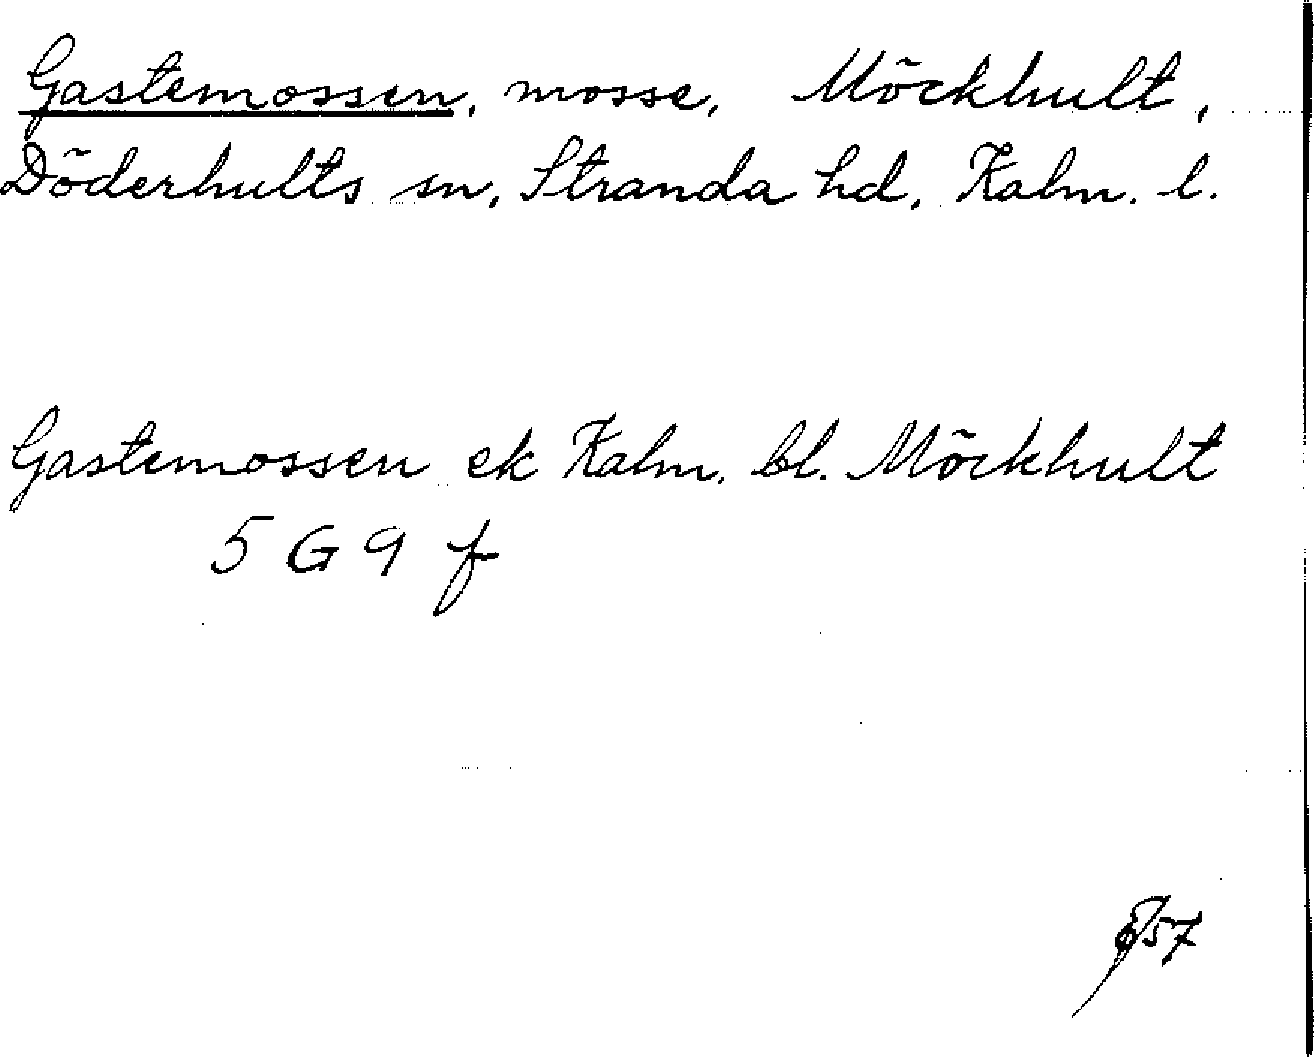 Gastemossen, mosse, Möckhult,
Döderhults sn, Stranda hd, Kalm. l.
Gastemossen ek Kalm. bl. Möckhult
5 G 9 f
57